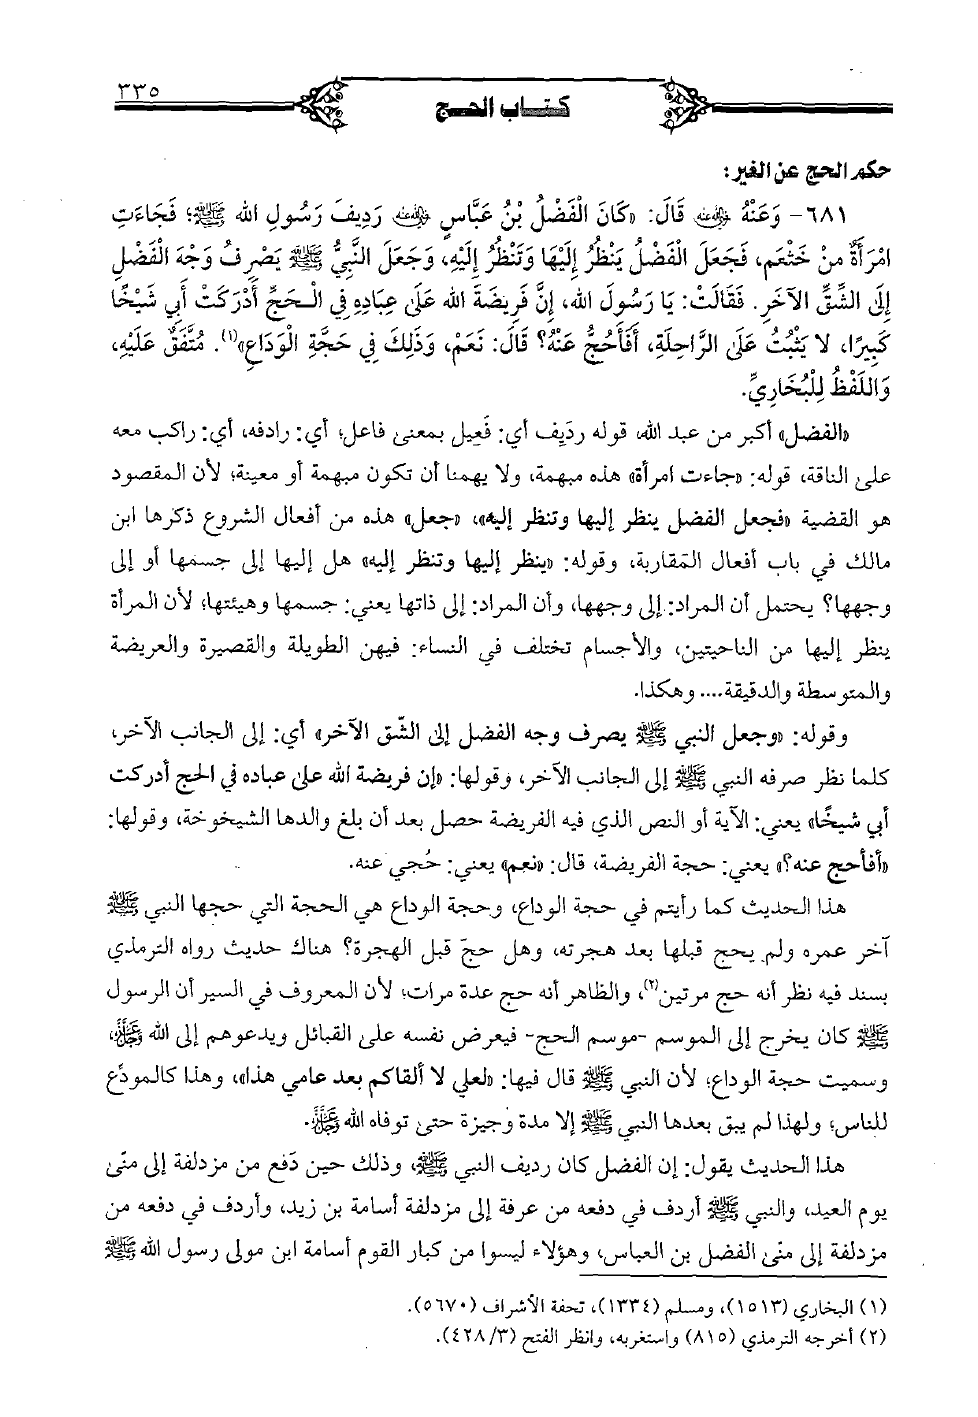 ٣٣٥
كتاب الحج
حكم الحج عن الغير:
٦٨١- وَعَنْهُ ﵁ قَالَ: «كَانَ الْفَضْلُ بْنُ عَبَّاسٍ ﵁ رَدِيفَ رَسُولِ الله ﷺ؛ فَجَاءَتِ
امْرَأَةٌ مِنْ خَثْعَم، فَجَعَلَ الْفَضْلُ يَنْظُرُ إِلَيْهَا وَتَنْظُرُ إِلَيْهِ، وَجَعَلَ النَّبِيُّ ﷺ يَصْرِفُ وَجْهَ الْفَضْلِ
إِلَى الشِّقِّ الآخَرِ. فَقَالَتْ: يَا رَسُولَ الله، إِنَّ فَرِيضَةَ الله عَلَى عِبَادِهِ فِي الْحَجِّ أَدْرَكَتْ أَبِي شَيْخًا
كَبِيرًا، لا يَثْبُتُ عَلَى الرَّاحِلَةِ، أَفَأَحُجُّ عَنْهُ؟ قَالَ: نَعَمْ، وَذَلِكَ فِي حَجَّةِ الْوَدَاعِ»(١). مُتَّفَقٌ عَلَيْهِ،
وَاللَّفْظُ لِلْبُخَارِيِّ.
«الفضل» أكبر من عبد الله، قوله رديف أي: فَعِيل بمعنى فاعل؛ أي: رادفه، أي: راكب معه
على الناقة، قوله: «جاءت امرأة» هذه مبهمة، ولا يهمنا أن تكون مبهمة أو معينة؛ لأن المقصود
هو القضية «فجعل الفضل ينظر إليها وتنظر إليه»، «جعل» هذه من أفعال الشروع ذكرها ابن
مالك في باب أفعال المقاربة، وقوله: «ينظر إليها وتنظر إليه» هل إليها إلى جسمها أو إلى
وجهها؟ يحتمل أن المراد: إلى وجهها، وأن المراد: إلى ذاتها يعني: جسمها وهيئتها؛ لأن المرأة
ينظر إليها من الناحيتين، والأجسام تختلف في النساء: فيهن الطويلة والقصيرة والعريضة
والمتوسطة والدقيقة.... وهكذا.
وقوله: «وجعل النبي ﷺ يصرف وجه الفضل إلى الشّق الآخر» أي: إلى الجانب الآخر،
كلما نظر صرفه النبي ﷺ إلى الجانب الآخر، وقولها: «إن فريضة الله على عباده في الحج أدركت
أبي شيخًا» يعني: الآية أو النص الذي فيه الفريضة حصل بعد أن بلغ والدها الشيخوخة، وقولها:
«أفأحج عنه؟» يعني: حجة الفريضة، قال: «نعم» يعني: حُجي عنه.
هذا الحديث كما رأيتم في حجة الوداع، وحجة الوداع هي الحجة التي حجها النبي ﷺ
آخر عمره ولم يحج قبلها بعد هجرته، وهل حجّ قبل الهجرة؟ هناك حديث رواه الترمذي
بسند فيه نظر أنه حج مرتين(٢)، والظاهر أنه حج عدة مرات؛ لأن المعروف في السير أن الرسول
ﷺ كان يخرج إلى الموسم -موسم الحج- فيعرض نفسه على القبائل ويدعوهم إلى الله ﷿،
وسميت حجة الوداع؛ لأن النبي ﷺ قال فيها: «لعلي لا ألقاكم بعد عامي هذا»، وهذا كالمودِّع
للناس؛ ولهذا لم يبق بعدها النبي ﷺ إلا مدة وجيزة حتى توفاه الله ﷿.
هذا الحديث يقول: إن الفضل كان رديف النبي ﷺ، وذلك حين دَفع من مزدلفة إلى منًى
يوم العيد، والنبي ﷺ أردف في دفعه من عرفة إلى مزدلفة أسامة بن زيد، وأردف في دفعه من
مزدلفة إلى منًى الفضل بن العباس، وهؤلاء ليسوا من كبار القوم أسامة ابن مولى رسول الله ﷺ
(١) البخاري (١٥١٣)، ومسلم (١٣٣٤)، تحفة الأشراف (٥٦٧٠).
(٢) أخرجه الترمذي (٨١٥) واستغربه، وانظر الفتح (٤٢٨/٣).